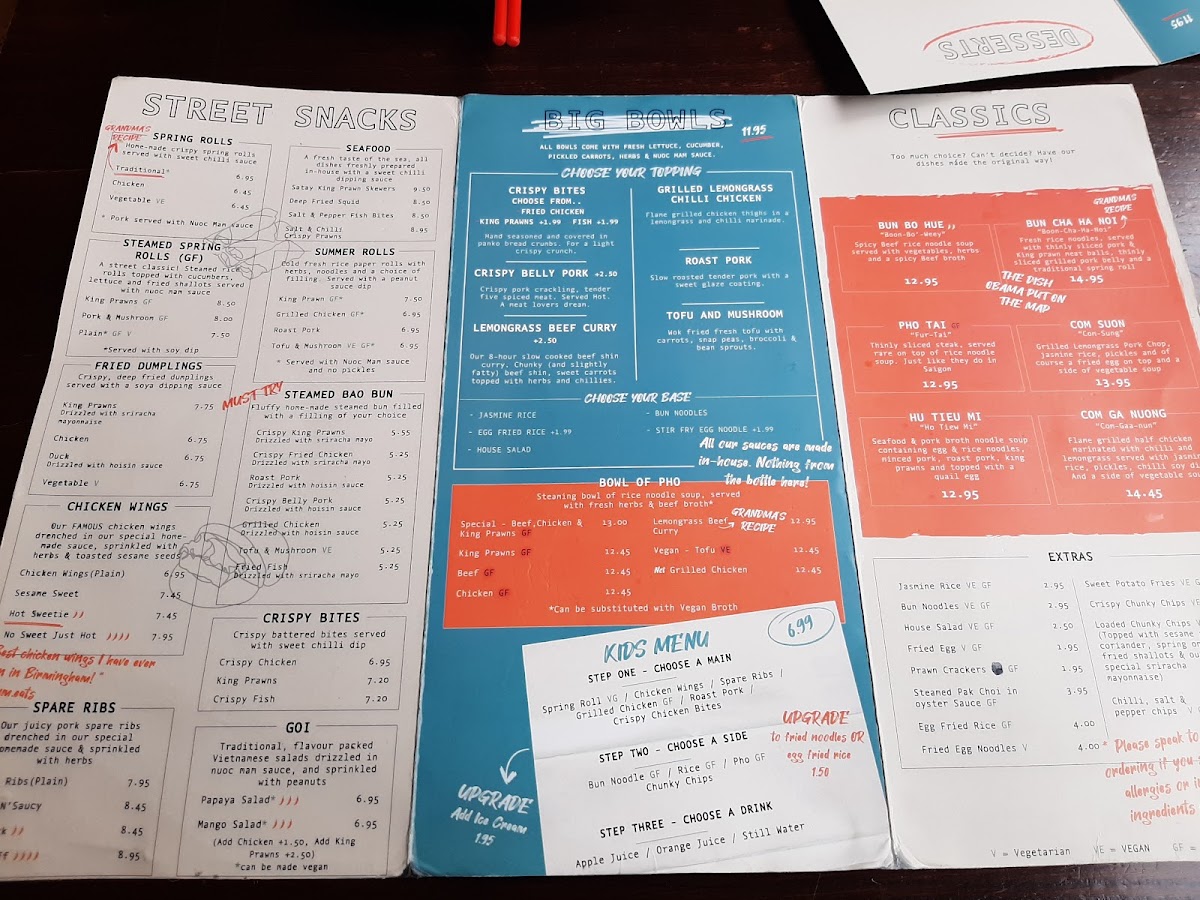 STREET SNACKS
GRANDMA'S
RECIPE
SPRING ROLLS
Home-made crispy spring rolls
served with sweet chilli sauce
Traditional* 6.95
Chicken 6.45
Vegetable VE 6.45
* Pork served with Nuoc Mam sauce
STEAMED SPRING
ROLLS (GF)
A street classic! Steamed rice
rolls topped with cucumbers,
lettuce and fried shallots served
with nuoc mam sauce
King Prawns GF 8.50
Pork & Mushroom GF 8.00
Plain* GF V 7.50
*Served with soy dip
FRIED DUMPLINGS
Crispy, deep fried dumplings
served with a soya dipping sauce
King Prawns 7.75
Drizzled with sriracha
mayonnaise
Chicken 6.75
Duck 6.75
Drizzled with hoisin sauce
Vegetable V 6.75
CHICKEN WINGS
Our FAMOUS chicken wings
drenched in our special home-
made sauce, sprinkled with
herbs & toasted sesame seeds
Chicken Wings(Plain) 6.95
Sesame Sweet 7.45
Hot Sweetie 7.45
No Sweet Just Hot 7.95
Best chicken wings I have ever
in Birmingham!"
SPARE RIBS
Our juicy pork spare ribs
drenched in our special
homemade sauce & sprinkled
with herbs
Ribs(Plain) 7.95
N'Saucy 8.45
8.45
8.95
SEAFOOD
A fresh taste of the sea, all
dishes freshly prepared
in-house with a sweet chilli
dipping sauce
Satay King Prawn Skewers 9.50
Deep Fried Squid 8.50
Salt & Pepper Fish Bites 8.50
Salt & Chilli 8.95
Crispy Prawns
SUMMER ROLLS
Cold fresh rice paper rolls with
herbs, noodles and a choice of
filling. Served with a peanut
sauce dip
King Prawn GF* 7.50
Grilled Chicken GF* 6.95
Roast Pork 6.95
Tofu & Mushroom VE GF* 6.95
* Served with Nuoc Mam sauce
and no pickles
MUST TRY
STEAMED BAO BUN
Fluffy home-made steamed bun filled
with a filling of your choice
Crispy King Prawns 5.55
Drizzled with sriracha mayo
Crispy Fried Chicken 5.25
Drizzled with sriracha mayo
Roast Pork 5.25
Drizzled with hoisin sauce
Crispy Belly Pork 5.25
Drizzled with hoisin sauce
Grilled Chicken 5.25
Tofu & Mushroom VE 5.25
Fried Fish 5.25
Drizzled with sriracha mayo
CRISPY BITES
Crispy battered bites served
with sweet chilli dip
Crispy Chicken 6.95
King Prawns 7.20
Crispy Fish 7.20
GOI
Traditional, flavour packed
Vietnamese salads drizzled in
nuoc mam sauce, and sprinkled
with peanuts
Papaya Salad* 6.95
Mango Salad* 6.95
(Add Chicken +1.50, Add King
Prawns +2.50)
*can be made vegan
BIG BOWLS 11.95
ALL BOWLS COME WITH FRESH LETTUCE, CUCUMBER,
PICKLED CARROTS, HERBS & NUOC MAM SAUCE.
CHOOSE YOUR TOPPING
CRISPY BITES
CHOOSE FROM..
FRIED CHICKEN
KING PRAWNS +1.99 FISH +1.99
Hand seasoned and covered in
panko bread crumbs. For a light
crispy crunch.
CRISPY BELLY PORK +2.50
Crispy pork crackling, tender
five spiced meat. Served Hot.
A meat lovers dream.
LEMONGRASS BEEF CURRY
+2.50
Our 8-hour slow cooked beef shin
curry. Chunky (and slightly
fatty) beef shin, sweet carrots
topped with herbs and chillies.
GRILLED LEMONGRASS
CHILLI CHICKEN
Flame grilled chicken thighs in a
lemongrass and chilli marinade.
ROAST PORK
Slow roasted tender pork with a
sweet glaze coating.
TOFU AND MUSHROOM
Wok fried fresh tofu with
carrots, snap peas, broccoli &
bean sprouts.
CHOOSE YOUR BASE
- JASMINE RICE
- EGG FRIED RICE +1.99
- HOUSE SALAD
- BUN NOODLES
- STIR FRY EGG NOODLE +1.99
All our sauces are made
in-house. Nothing from
the bottle here!
BOWL OF PHO
Steaming bowl of rice noodle soup, served
with fresh herbs & beef broth*
Special - Beef,Chicken & 13.00
King Prawns GF
King Prawns GF 12.45
Beef GF 12.45
Chicken GF 12.45
Lemongrass Beef 12.95
Curry
GRANDMA'S
RECIPE
Vegan - Tofu VE 12.45
Grilled Chicken 12.45
*Can be substituted with Vegan Broth
KIDS MENU 6.99
STEP ONE - CHOOSE A MAIN
Spring Roll VG / Chicken Wings / Spare Ribs /
Grilled Chicken GF / Roast Pork /
Crispy Chicken Bites
STEP TWO - CHOOSE A SIDE
Bun Noodle GF / Rice GF / Pho GF
Chunky Chips
UPGRADE
to fried noodles OR
egg fried rice
1.50
STEP THREE - CHOOSE A DRINK
Apple Juice / Orange Juice / Still Water
UPGRADE
Add Ice Cream
1.95
DESSERTS
11.95
CLASSICS
Too much choice? Can't decide? Have our
dishes made the original way!
BUN BO HUE
"Boon-Bo'-Weey"
Spicy Beef rice noodle soup
served with vegetables, herbs
and a spicy Beef broth
12.95
GRANDMA'S
RECIPE
BUN CHA HA NOI
"Boon-Cha-Ha-Noi"
Fresh rice noodles, served
with thinly sliced pork &
King prawn meat balls, thinly
sliced grilled pork belly and a
traditional spring roll
14.95
THE DISH
OBAMA PUT ON
THE MAP
PHO TAI GF
"Fur-Tai"
Thinly sliced steak, served
rare on top of rice noodle
soup. Just like they do in
Saigon
12.95
COM SUON
"Com-Sung"
Grilled Lemongrass Pork Chop,
jasmine rice, pickles and of
course a fried egg on top and a
side of vegetable soup
13.95
HU TIEU MI
"Ho Tiew Mi"
Seafood & pork broth noodle soup
containing egg & rice noodles,
minced pork, roast pork, king
prawns and topped with a
quail egg
12.95
COM GA NUONG
"Com-Gaa-nun"
Flame grilled half chicken
marinated with chilli and
lemongrass served with Jasmine
rice, pickles, chilli soy di
And a side of vegetable sou
14.45
EXTRAS
Jasmine Rice VE GF 2.95
Bun Noodles VE GF 2.95
House Salad VE GF 2.50
Fried Egg V GF 1.95
Prawn Crackers GF 1.95
Steamed Pak Choi in 3.95
oyster Sauce GF
Egg Fried Rice GF 4.00
Fried Egg Noodles V 4.00
Sweet Potato Fries VE G
Crispy Chunky Chips VE
Loaded Chunky Chips V
(Topped with sesame
coriander, spring on
fried shallots & ou
special sriracha
mayonnaise)
Chilli, salt &
pepper chips V
* Please speak to
ordering if you
allergies or i
ingredients
V = Vegetarian VE = VEGAN GF =